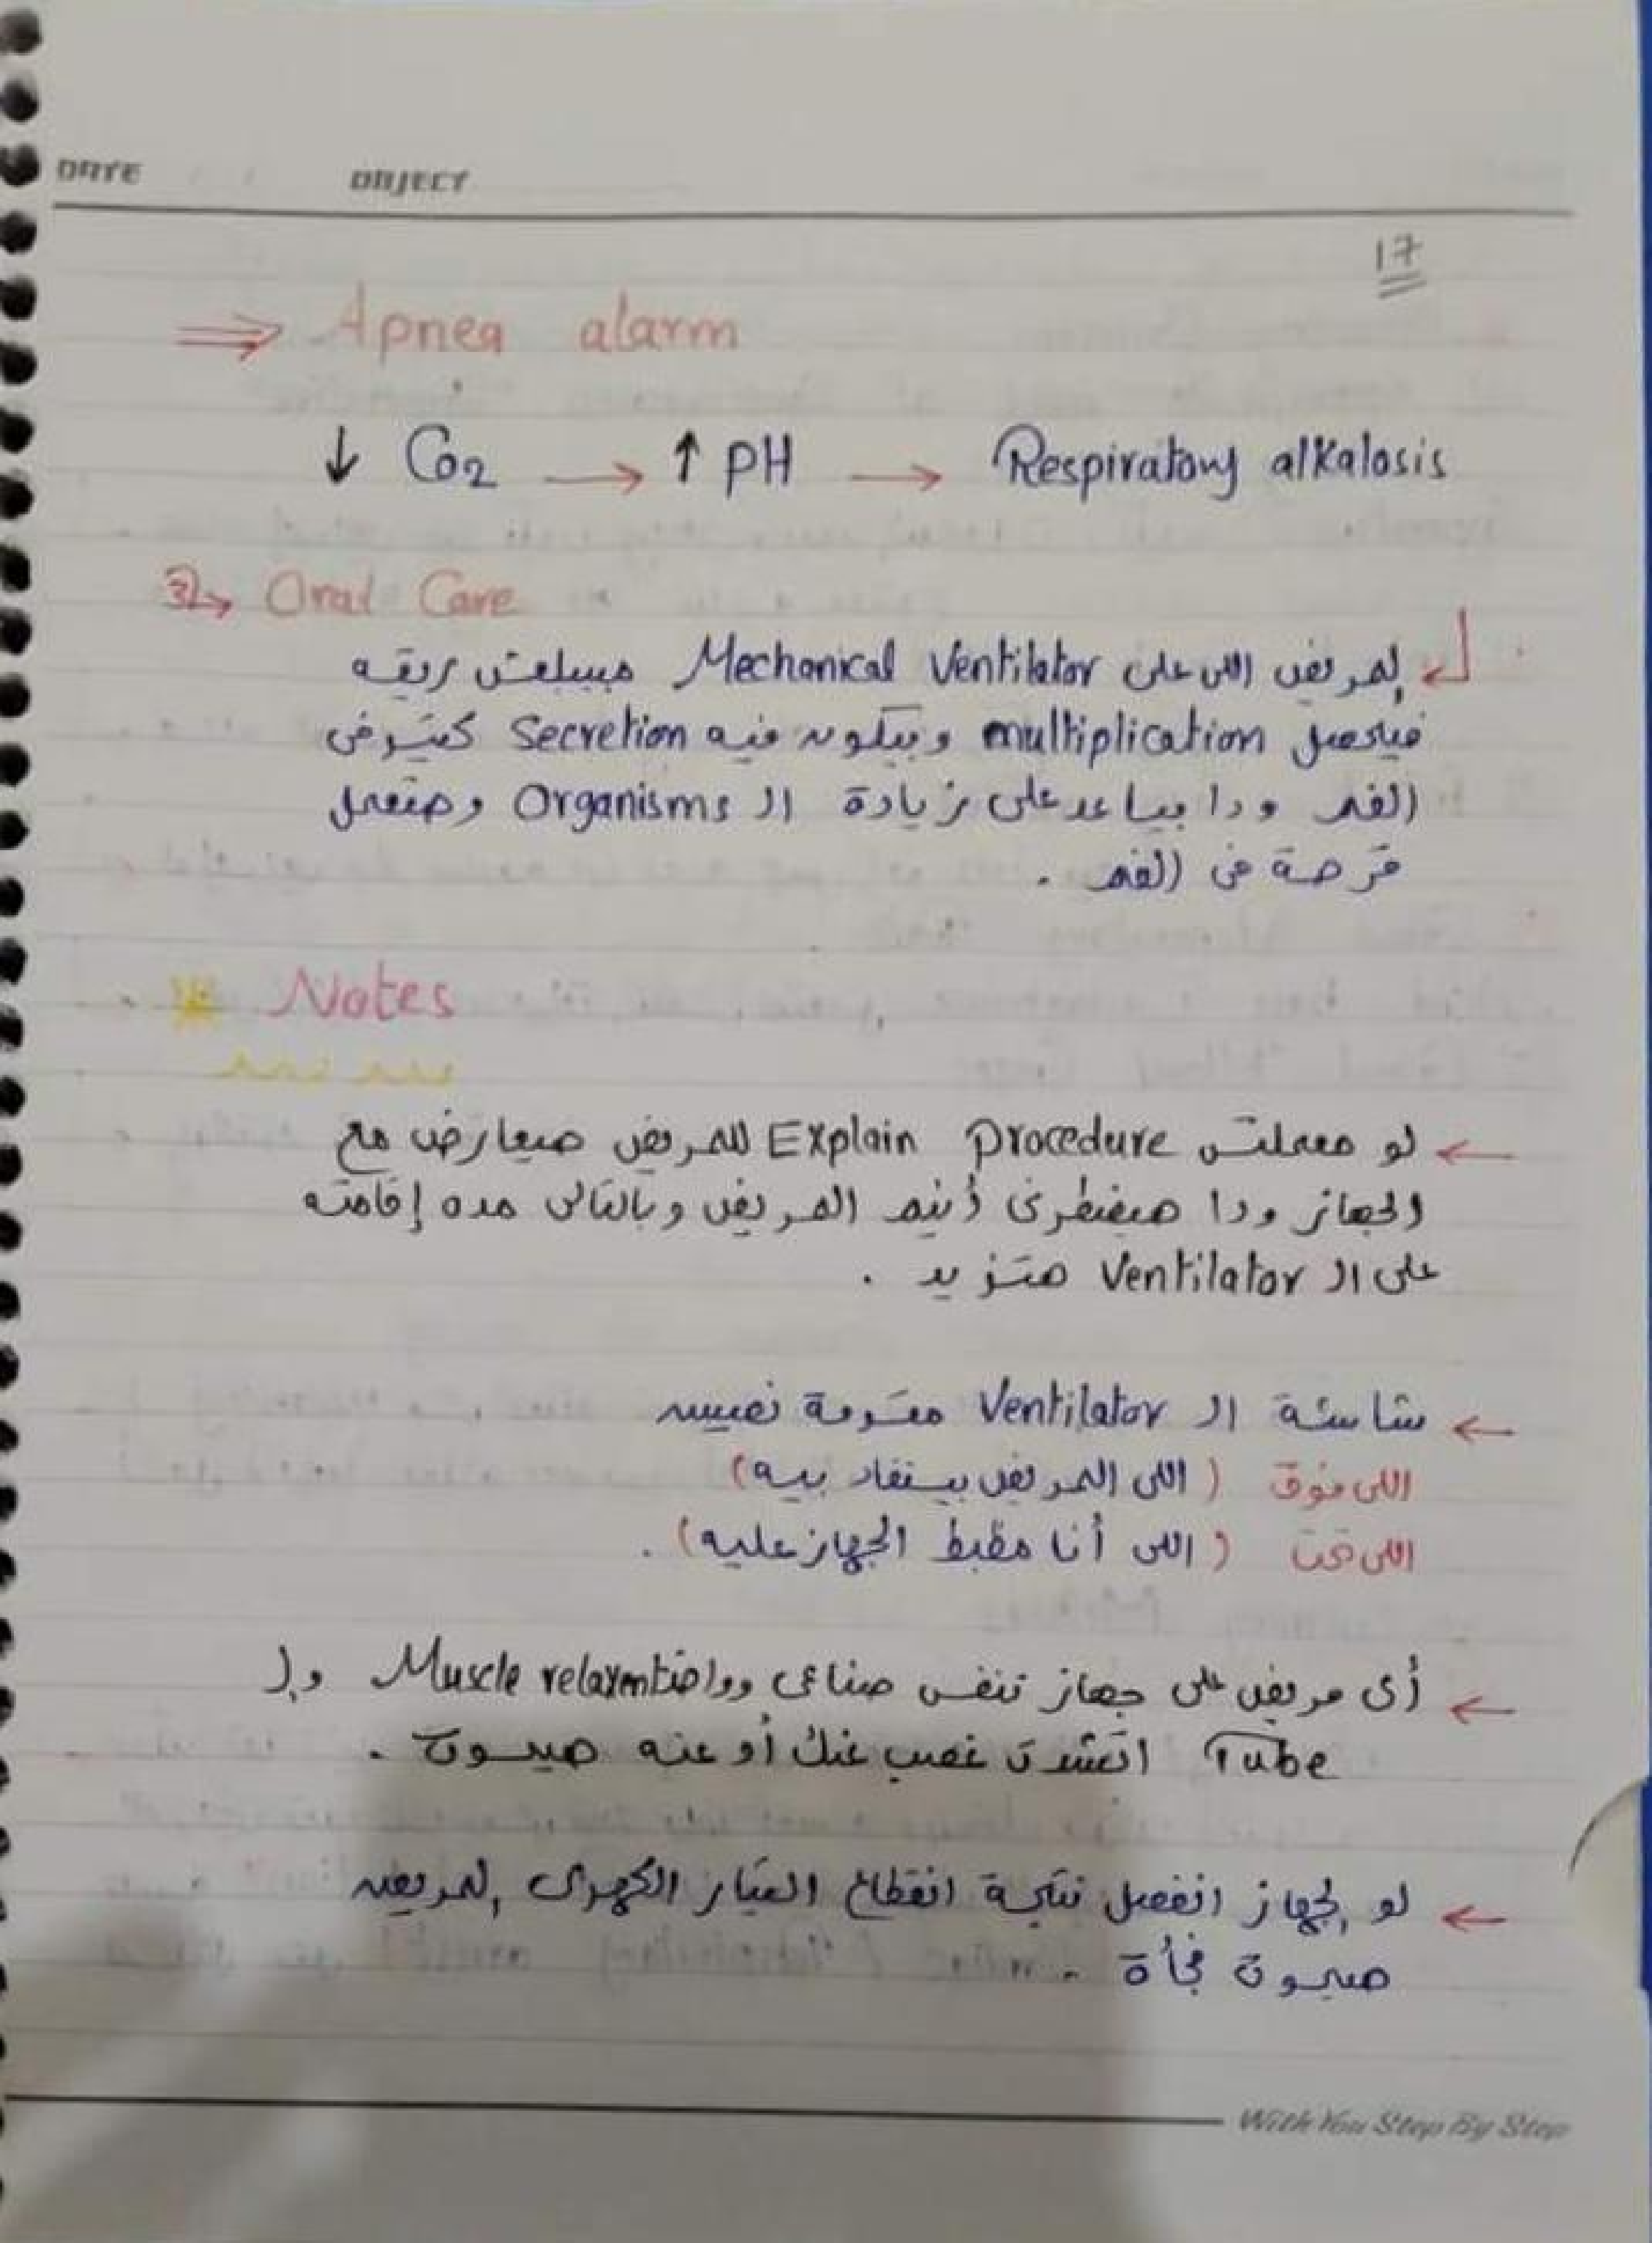 DATE OBJECT
17
⇒ Apnea alarm
↓ Co2 → ↑ pH → Respiratory alkalosis
3→ Oral Care
المريض اللى على Mechanical Ventilator مبيبلعش ريقه
فيحصل multiplication وبيكون فيه Secretion كتير فى
الفم ودا بيساعد على زيادة الـ Organisms وهتعمل
قرحة فى الفم .
* Notes
← لو معملتش Explain Procedure للمريض هيعارض مع
الجهاز ودا هيضطرنى أنيم المريض وبالتالى مده إقامته
على الـ Ventilator هتزيد .
← شاشة الـ Ventilator مقسومة نصين
اللى فوق ( اللى المريض بيستفاد بيه )
اللى تحت ( اللى أنا مظبط الجهاز عليه ) .
← أى مريض على جهاز تنفس صناعى وواخد Muscle relaxant والـ
Tube اتشدت غصب عنك أو عنه هيموت .
← لو الجهاز انفصل نتيجة انقطاع التيار الكهربى المريض
هيموت فجأة .
With You Step By Step